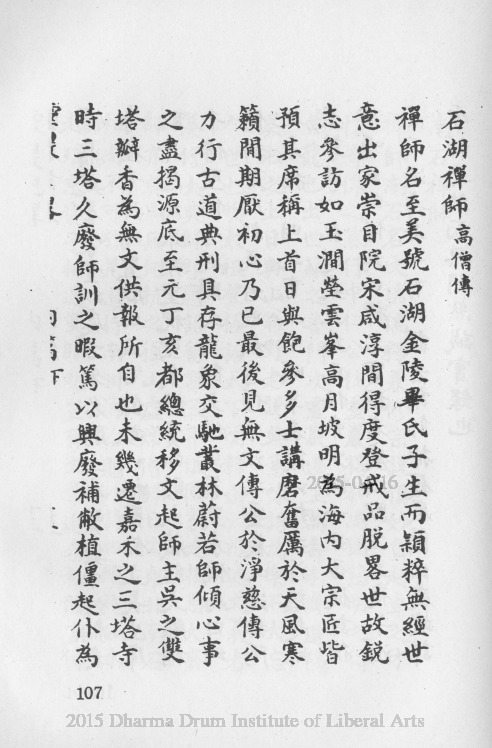 石湖禪師 高僧傳
禪師名至美號石湖金陵畢氏子生而穎粹無經世
意出家崇目院宋咸淳間得度登戒品脫畧世故銳
志參訪如玉澗瑩雲峯高月坡明為海內大宗匠皆
預其席稱上首日與飽參多士講磨奮厲於天風寒
籟間期厭初心乃已最後見無文傳公於淨慈傳公
力行古道典刑具存龍象交馳叢林蔚若師傾心事
之盡揭源底至元丁亥都總統移文起師主吳之雙
塔瓣香為無文供報所自也未幾遷嘉禾之三塔寺
時三塔久廢師訓之暇篤以興廢補敝植僵起仆為
107
2015 Dharma Drum Institute of Liberal Arts